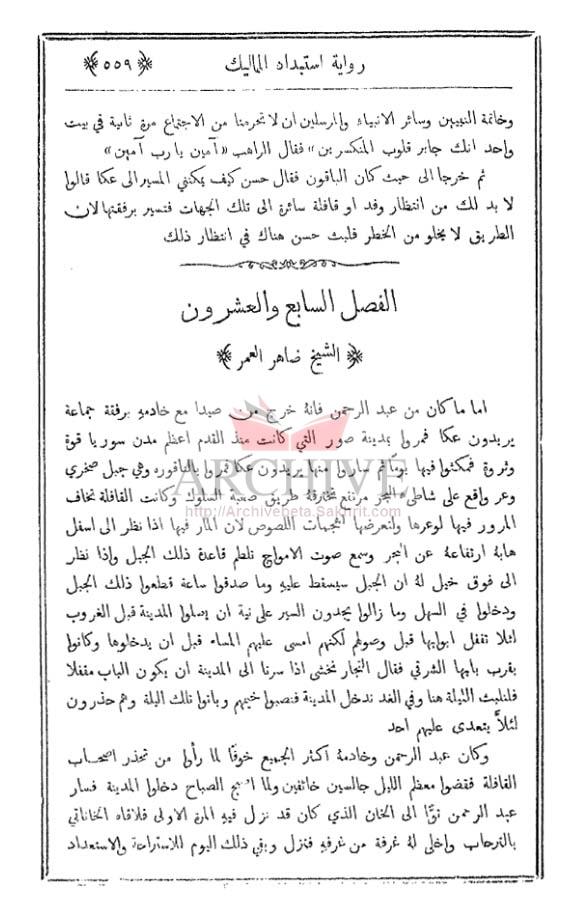 رواية استبداد المماليك ﴿٥٥٩﴾
وخاتمة النبيين وسائر الانبياء والمرسلين ان لا تحرمنا من الاجتماع مرة ثانية في بيت
واحد انك جابر قلوب المنكسرين» فقال الراهب «آمين يا رب آمين»
ثم خرجا الى حيث كان الباقون فقال حسن كيف يمكنني المسير الى عكا قالوا
لا بد لك من انتظار وفد او قافلة سائرة الى تلك الجهات فتسير برفقتها لان
الطريق لا يخلو من الخطر فلبث حسن هناك في انتظار ذلك
الفصل السابع والعشرون
﴿الشيخ ضاهر العمر﴾
اما ما كان من عبد الرحمن فانهُ خرج من صيدا مع خادمهِ برفقة جماعة
يريدون عكا فمروا بمدينة صور التي كانت منذ القدم اعظم مدن سوريا قوة
وثروة فمكثوا فيها يومًا ثم ساروا منها يريدون عكا فمروا بالناقوره وهي جبل صخري
وعر واقع على شاطىء البحر مرتفع تخترقهُ طريق صعبة السلوك وكانت القافلة تخاف
المرور فيها لوعرها ولتعرضها لهجمات اللصوص لان المار فيها اذا نظر الى اسفل
هابهُ ارتفاعهُ عن البحر وسمع صوت الامواج تلطم قاعدة ذلك الجبل واذا نظر
الى فوق خيل لهُ ان الجبل سيسقط عليهِ وما صدقوا ساعة قطعوا ذلك الجبل
ودخلوا في السهل وما زالوا يجدون السير على نية ان يصلوا المدينة قبل الغروب
لئلا تقفل ابوابها قبل وصولهم لكنهم امسى عليهم المساء قبل ان يدخلوها وكانوا
بقرب بابها الشرقي فقال التجار نخشى اذا سرنا الى المدينة ان يكون الباب مقفلا
فلنلبث الليلة هنا وفي الغد ندخل المدينة فنصبوا خيمهم وباتوا تلك اليلة وهم حذرون
لئلاَّ يتعدى عليهم احد
وكان عبد الرحمن وخادمهُ اكثر الجميع خوفًا لما رأوا من تحذر اصحاب
القافلة فقضوا معظم الليل جالسين خائفين ولما اصبح الصباح دخلوا المدينة فسار
عبد الرحمن توًّا الى الخان الذي كان قد نزل فيهِ المرة الاولى فلاقاه الخاناتي
بالترحاب واخلى لهُ غرفة من غرفهِ فنزل وبقي ذلك اليوم للاستراحة والاستعداد
ARCHIVE
http://Archivebeta.Sakhrit.com